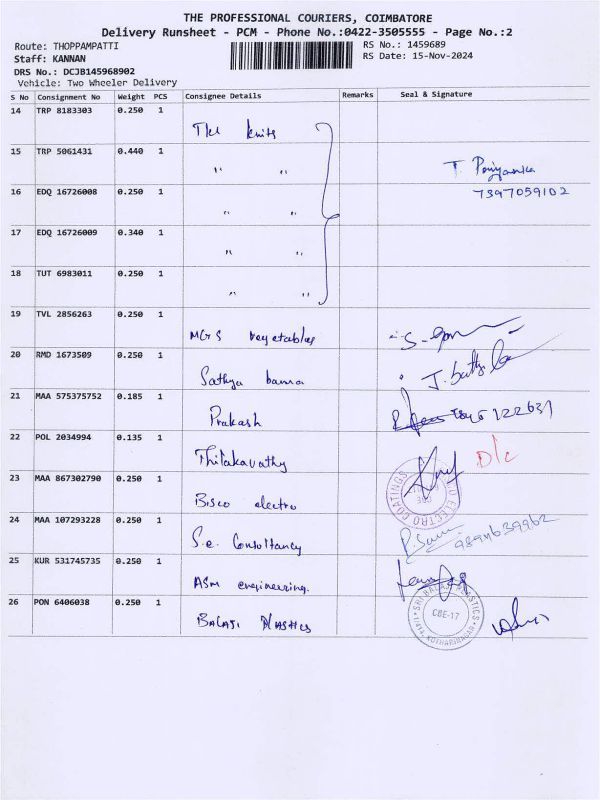 THE PROFESSIONAL COURIERS, COIMBATORE
Delivery Runsheet - PCM - Phone No.:0422-3505555 - Page No.:2
Route: THOPPAMPATTI
RS No.: 1459689
Staff: KANNAN
RS Date: 15-Nov-2024
DRS No.: DCJB145968902
Vehicle: Two Wheeler Delivery
S No Consignment No Weight PCS Consignee Details Remarks Seal & Signature
14 TRP 8183303 0.250 1
knits
15 TRP 5061431 0.440 1
" "
T. Priyanka
16 EDQ 16726008 0.250 1
7397059102
" "
17 EDQ 16726009 0.340 1
" "
18 TUT 6983011 0.250 1
" "
19 TVL 2856263 0.250 1
MGS vegetables
20 RMD 1673509 0.250 1
Sathya
21 MAA 575375752 0.185 1
Prakash
22 POL 2034994 0.135 1
Thilakavathy
D/c
23 MAA 867302790 0.250 1
Bisco electro
ELECTRO COATINGS
24 MAA 107293228 0.250 1
S.e. Consultancy
25 KUR 531745735 0.250 1
ASM engineering.
26 PON 6406038 0.250 1
Balaji Plastics
SRI BALAJI PLASTICS
CBE-17